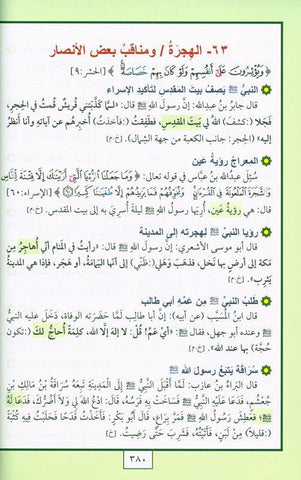 ٦٣- الهِجرَةُ / ومناقبُ بعض الأنصار
﴿ وَيُؤْثِرُونَ عَلَىٰ أَنفُسِهِمْ وَلَوْ كَانَ بِهِمْ خَصَاصَةٌ ﴾ [الحشر:٩]
النبيُّ ﷺ يَصِفُ بيتَ المقدِسِ لتأكيدِ الإسراء
قال جابرُ بنُ عبدِالله: إنَّ رسولَ اللهِ ﷺ قال: «لمَّا كَذَّبَتني قُريشٌ قُمتُ في الحِجرِ،
فجَلَا (:كشَفَ) اللهُ لي بَيتَ المَقدِسِ، فطَفِقتُ (:فأخذتُ) أُخبِرُهم عن آياتِه وأنا أنظُرُ
إليه» (الحِجر: جانب الكعبة من جهة الشِمال). [خ٠م]
المعراجُ رؤيةُ عَين
سُئِل عبدُالله بنُ عبَّاس في قوله تعالى: ﴿ وَمَا جَعَلْنَا الرُّءْيَا الَّتِي أَرَيْنَاكَ إِلَّا فِتْنَةً لِّلنَّاسِ
وَالشَّجَرَةَ الْمَلْعُونَةَ فِي الْقُرْآنِ وَنُخَوِّفُهُمْ فَمَا يَزِيدُهُمْ إِلَّا طُغْيَانًا كَبِيرًا ﴾ [الإسراء:٦٠]
قال: هي رؤيةُ عَينٍ، أُرِيَها رسولُ اللهِ ﷺ ليلةَ أُسرِيَ به إلى بيتِ المَقدِس.
رؤيا النبيِّ ﷺ لهِجرتِه إلى المدينة
قال أبو موسى الأشعري: إنَّ رسولَ اللهِ ﷺ قال: «رأيتُ في المَنام أنِّي أُهاجِرُ مِن
مكَّةَ إلى أرضٍ بها نَخل، فذهَبَ وَهَلي(:ظَنِّي) إلى أنَّها اليَمامَةُ، أو هَجَر، فإذا هي المدينةُ
يَثرِب». [خ٠م]
طلبُ النبيِّ ﷺ مِن عمِّه أبي طالب
قال ابنُ المُسَيَّب (عن أبيه): إنَّ أبا طالبٍ لمَّا حَضَرته الوفاة، دَخَلَ عليه النبيُّ
ﷺ وعندَه أبو جَهل، فقال: «أيْ عَمِّ! قُل: لا إله إلَّا الله، كَلِمَةً أُحاجُّ لكَ (:تكون
حُجَّة) بها عندَ الله». [خ٠م]
سُرَاقَة يتبعُ رسول الله ﷺ
قال: البَرَاءُ بنُ عازِب: لمَّا أقْبَلَ النَّبيُّ ﷺ إلى المَدِينَةِ تَبِعَهُ سُرَاقَةُ بْنُ مَالِكِ بْنِ
جُعْشُم، فدَعَا عَلَيهِ النَّبيُّ ﷺ فَسَاخَتْ بِهِ فَرَسُهُ، قَالَ: ادْعُ اللهَ لِي وَلاَ أَضُرُّكَ، فَدَعَا لَهُ
ﷺ؛ فَعَطِشَ رَسُولُ اللهِ ﷺ فَمَرَّ بِرَاعٍ، قَالَ أَبُو بَكْرٍ: فَأَخَذْتُ قَدَحًا فَحَلَبْتُ فِيهِ كُثْبَةً
(:قليلًا) مِنْ لَبَنٍ، فَأَتَيْتُهُ، فَشَرِبَ حَتَّى رَضِيتُ. [خ٠م]
٣٨٠